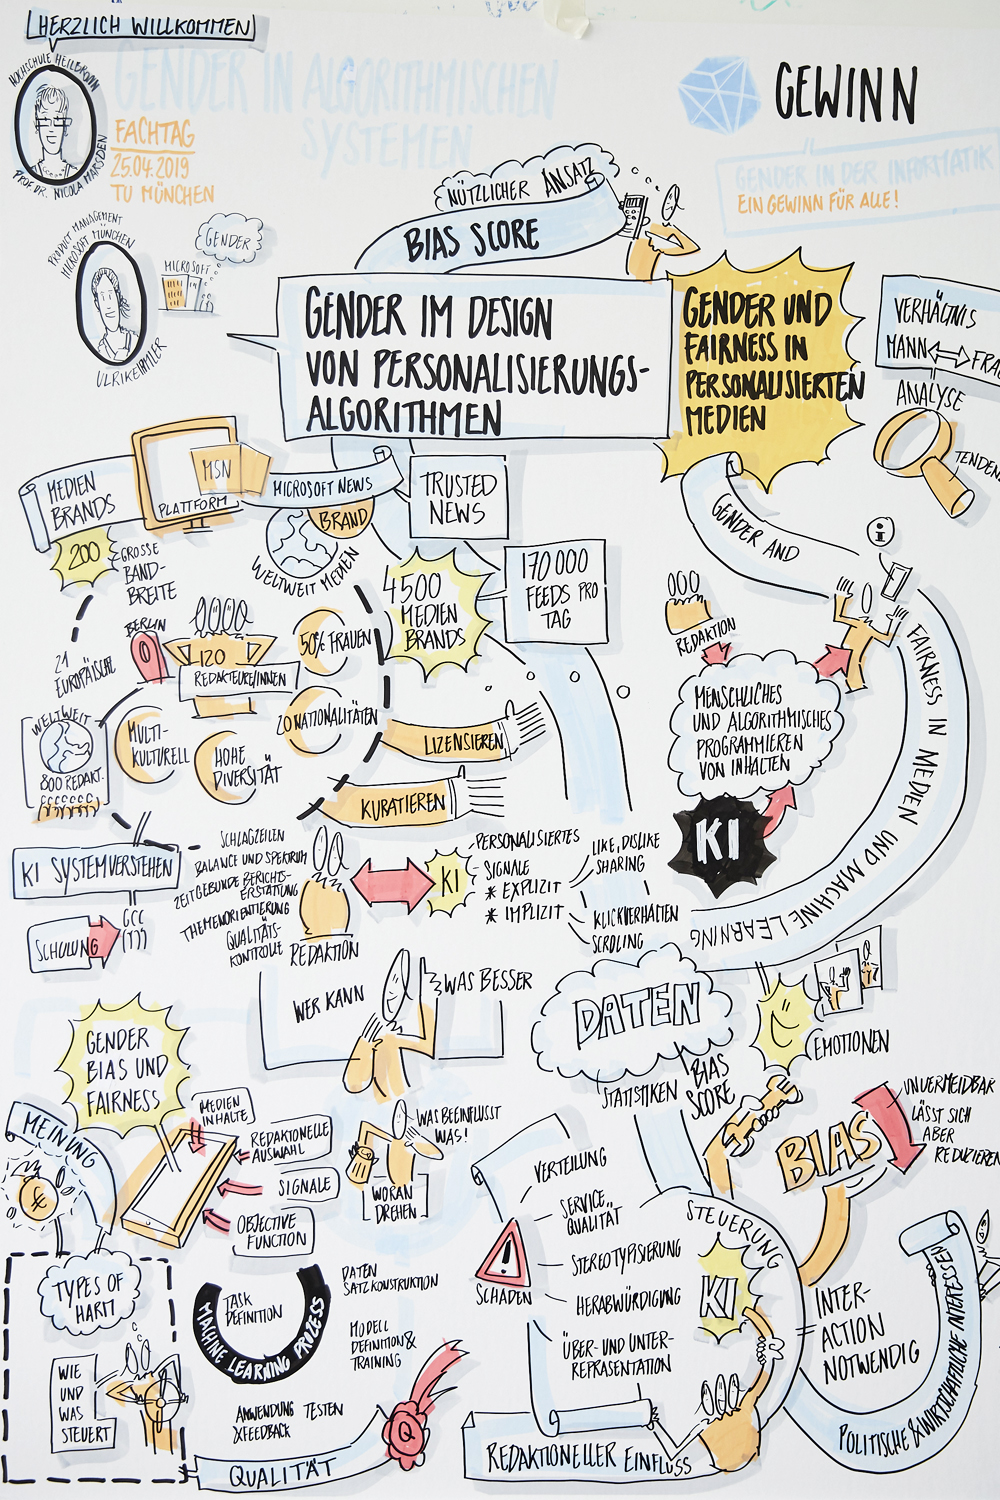 HERZLICH WILLKOMMEN
HOCHSCHULE HEILBRONN
PROF. DR. NICOLA MARSDEN
GENDER IN ALGORITHMISCHEN
SYSTEMEN
FACHTAG
25.04.2019
TU MÜNCHEN
GEWINN
GENDER IN DER INFORMATIK
EIN GEWINN FÜR ALLE!
PRODUCT MANAGEMENT
MICROSOFT MÜNCHEN
GENDER
MICROSOFT
NÜTZLICHER ANSATZ
BIAS SCORE
GENDER IM DESIGN
VON PERSONALISIERUNGS-
ALGORITHMEN
GENDER UND
FAIRNESS IN
PERSONALISIERTEN
MEDIEN
VERHÄLTNIS
MANN
ANALYSE
MEDIEN
BRANDS
200
GROSSE
BAND-
BREITE
PLATTFORM
MSN
MICROSOFT NEWS
BRAND
WELTWEIT MEDIEN
TRUSTED
NEWS
4500
MEDIEN
BRANDS
170 000
FEEDS PRO
TAG
21
EUROPÄISCHE
BERLIN
120
REDAKTEURE/INNEN
50% FRAUEN
20 NATIONALITÄTEN
WELTWEIT
800 REDAKT.
MULTI-
KULTURELL
HOHE
DIVERSITÄT
LIZENSIEREN
KURATIEREN
GENDER AND
FAIRNESS IN MEDIEN UND MACHINE LEARNING
REDAKTION
MENSCHLICHES
UND ALGORITHMISCHES
PROGRAMMIEREN
VON INHALTEN
KI
KI SYSTEM VERSTEHEN
SCHULUNG
SCHLAGZEILEN
BALANCE UND SPEKTRUM
ZEITGEBUNDE BERICHTS-
ERSTATTUNG
THEMENORIENTIERUNG
QUALITÄTS-
KONTROLLE
REDAKTION
KI
PERSONALISIERTES
SIGNALE
* EXPLIZIT
* IMPLIZIT
LIKE, DISLIKE
SHARING
KLICKVERHALTEN
SCROLING
WER KANN
WAS BESSER
DATEN
STATISTIKEN
BIAS
SCORE
EMOTIONEN
GENDER
BIAS UND
FAIRNESS
MEINUNG
MEDIEN
INHALTE
REDAKTIONELLE
AUSWAHL
SIGNALE
OBJECTIVE
FUNCTION
WAS BEEINFLUSST
WAS!
WORAN
DREHEN
BIAS
UNVERMEIDBAR
LÄSST SICH
ABER
REDUZIEREN
VERTEILUNG
SERVICE
QUALITÄT
STEREOTYPISIERUNG
HERABWÜRDIGUNG
ÜBER- UND UNTER-
REPRÄSENTATION
SCHADEN
STEUERUNG
KI
INTER-
ACTION
NOTWENDIG
POLITISCHE & WIRTSCHAFTLICHE INTERESSEN
TYPES OF
HARM
WIE
UND
WAS
STEUERT
TASK
DEFINITION
MACHINE LEARNING PROZESS
DATEN
SATZKONSTRUKTION
MODELL
DEFINITION &
TRAINING
ANWENDUNG TESTEN
& FEEDBACK
QUALITÄT
Q
REDAKTIONELLER EINFLUSS